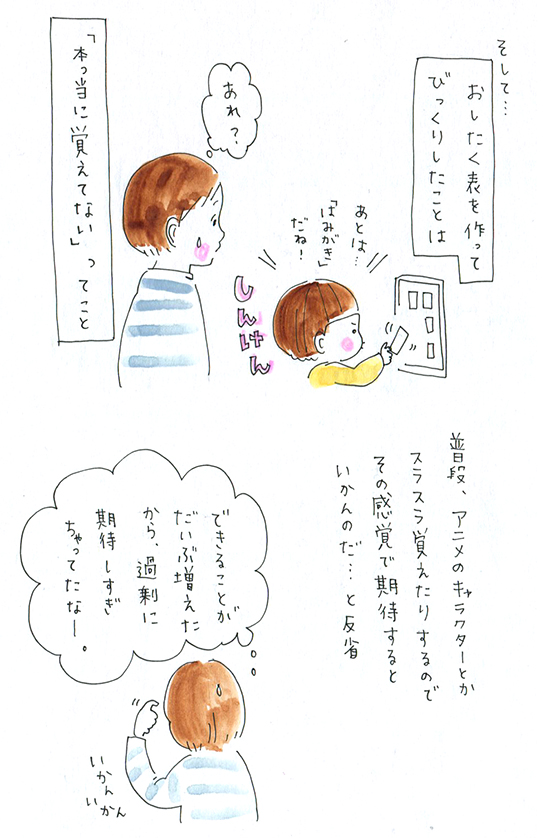 そして…
おしたく表を作って
びっくりしたことは
あとは…
「はみがき」
だね！
しんけん
あれ？
「本っ当に覚えてない」ってこと
普段、アニメのキャラクターとか
スラスラ覚えたりするので
その感覚で期待すると
いかんのだ…と反省
できることが
だいぶ増えた
から、過剰に
期待しすぎ
ちゃってたなー。
いかん
いかん